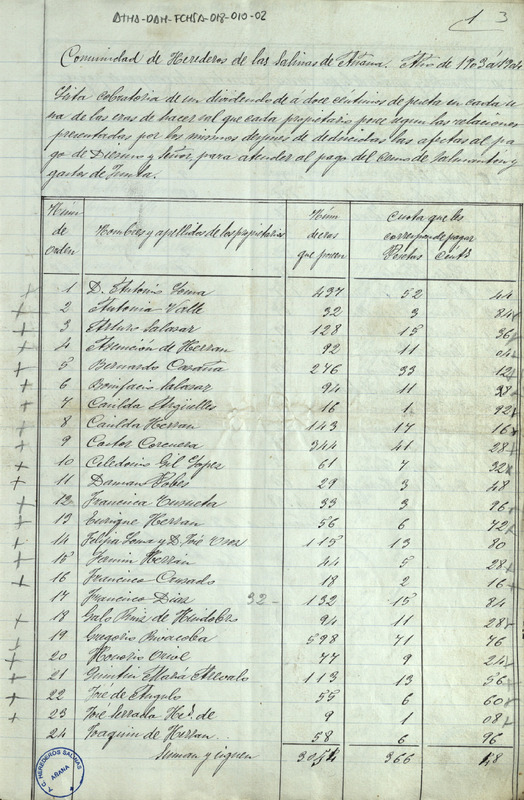 ATHA-DAH-FCHSA-018-010-02
1 3
Comunidad de Herederos de las Salinas de Añana. Año de 1903 á 1904
Lista cobratoria de un dividendo de á doce céntimos de peseta en cada u-
na de las eras de hacer sal que cada propietario posee segun las relaciones
presentadas por los mismos despues de deducidas las afectas al pa-
go de Diezmo y Señor, para atender al pago del censo de Salvatierra y
gastos de Junta.
Núm de orden | Nombres y apellidos de los propietarios | Núm de eras que poseen | Cuota que les corresponde pagar Pesetas Cénts
1 D. Antonio 437 52 44
2 Antonia Valle 32 3 84
3 Arturo Salazar 128 15 36
4 Asunción de Herran 92 11 04
5 Bernardo 276 33 12
6 Bonifacio Salazar 94 11 28
7 Casilda Argüelles 16 1 92
8 Casilda Herran 143 17 16
9 Castor Corcuera 344 41 28
10 Celedonio Gil Lopez 61 7 32
11 Damian Pobes 29 3 48
12 Francisca 33 3 96
13 Enrique Herran 56 6 72
14 Felipa y D. José 115 13 80
15 Fermin Herrán 44 5 28
16 Francisco Cerrado 18 2 16
17 Francisco Diaz 32 - 132 15 84
18 Galo Ruiz de Huidobro 94 11 28
19 Gregorio Rivacoba 598 71 76
20 Honorio Oriol 77 9 24
21 Quintin Maria Arevalo 113 13 56
22 José de Angulo 55 6 60
23 José Serralta He. de 9 1 08
24 Joaquin de Herran 58 6 96
Suman y siguen 366 18
C. HEREDEROS SALINAS
AÑANA